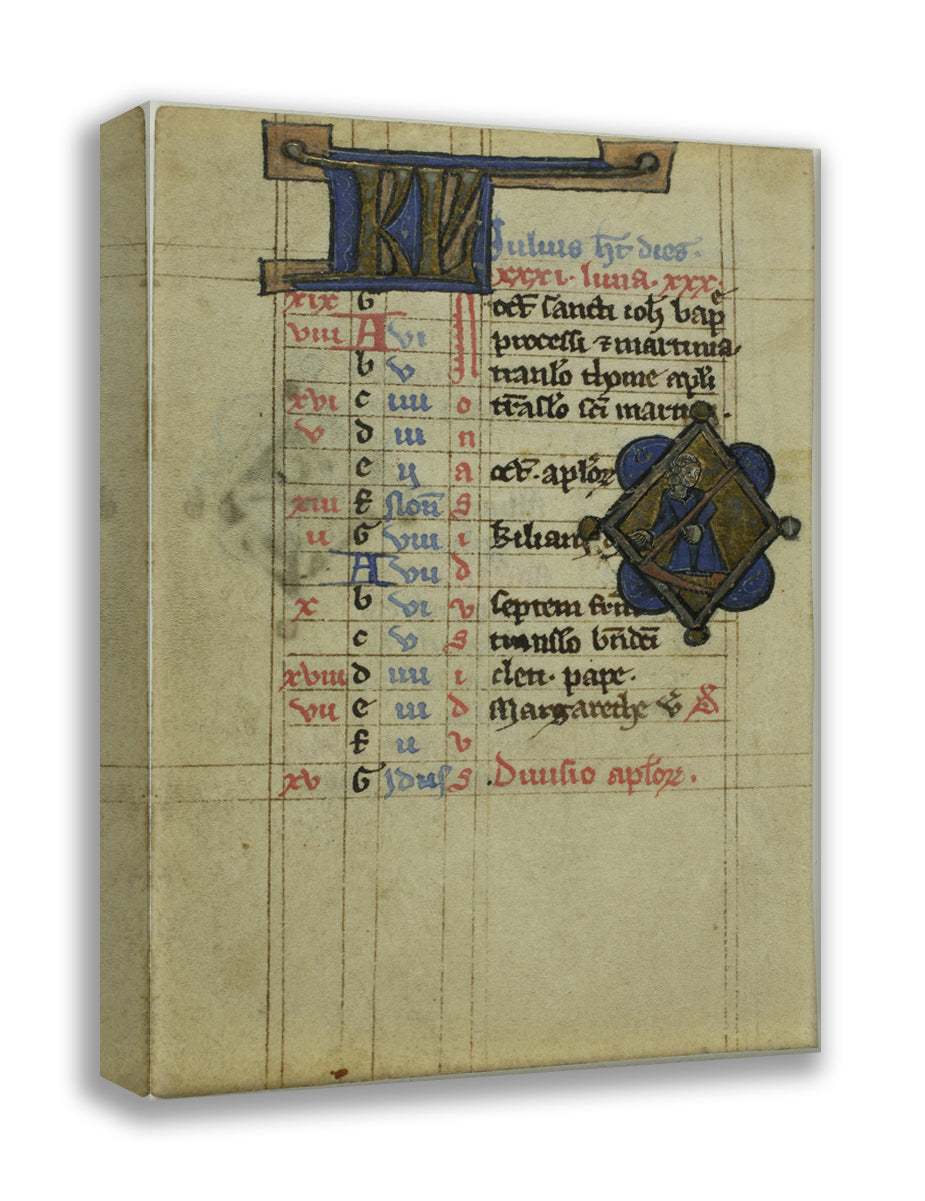 KL
Julius ht dies.
xxxi. luna. xxx.
xix G oct sancti ioh bape
viii A vi N processi ⁊ martinia.
b v translo thome apli
xvi c iiii o traslo sci martini.
v d iii n
e ij a oct. aplor
xiii f Non s
ii G viii i Kiliani
A vii d
x b vi v septem frum
c v s translo bndci
xviii d iiii i cleti. pape.
vii e iii d Margarethe v
f ii v
xv G Idus s .Diuisio aplor.